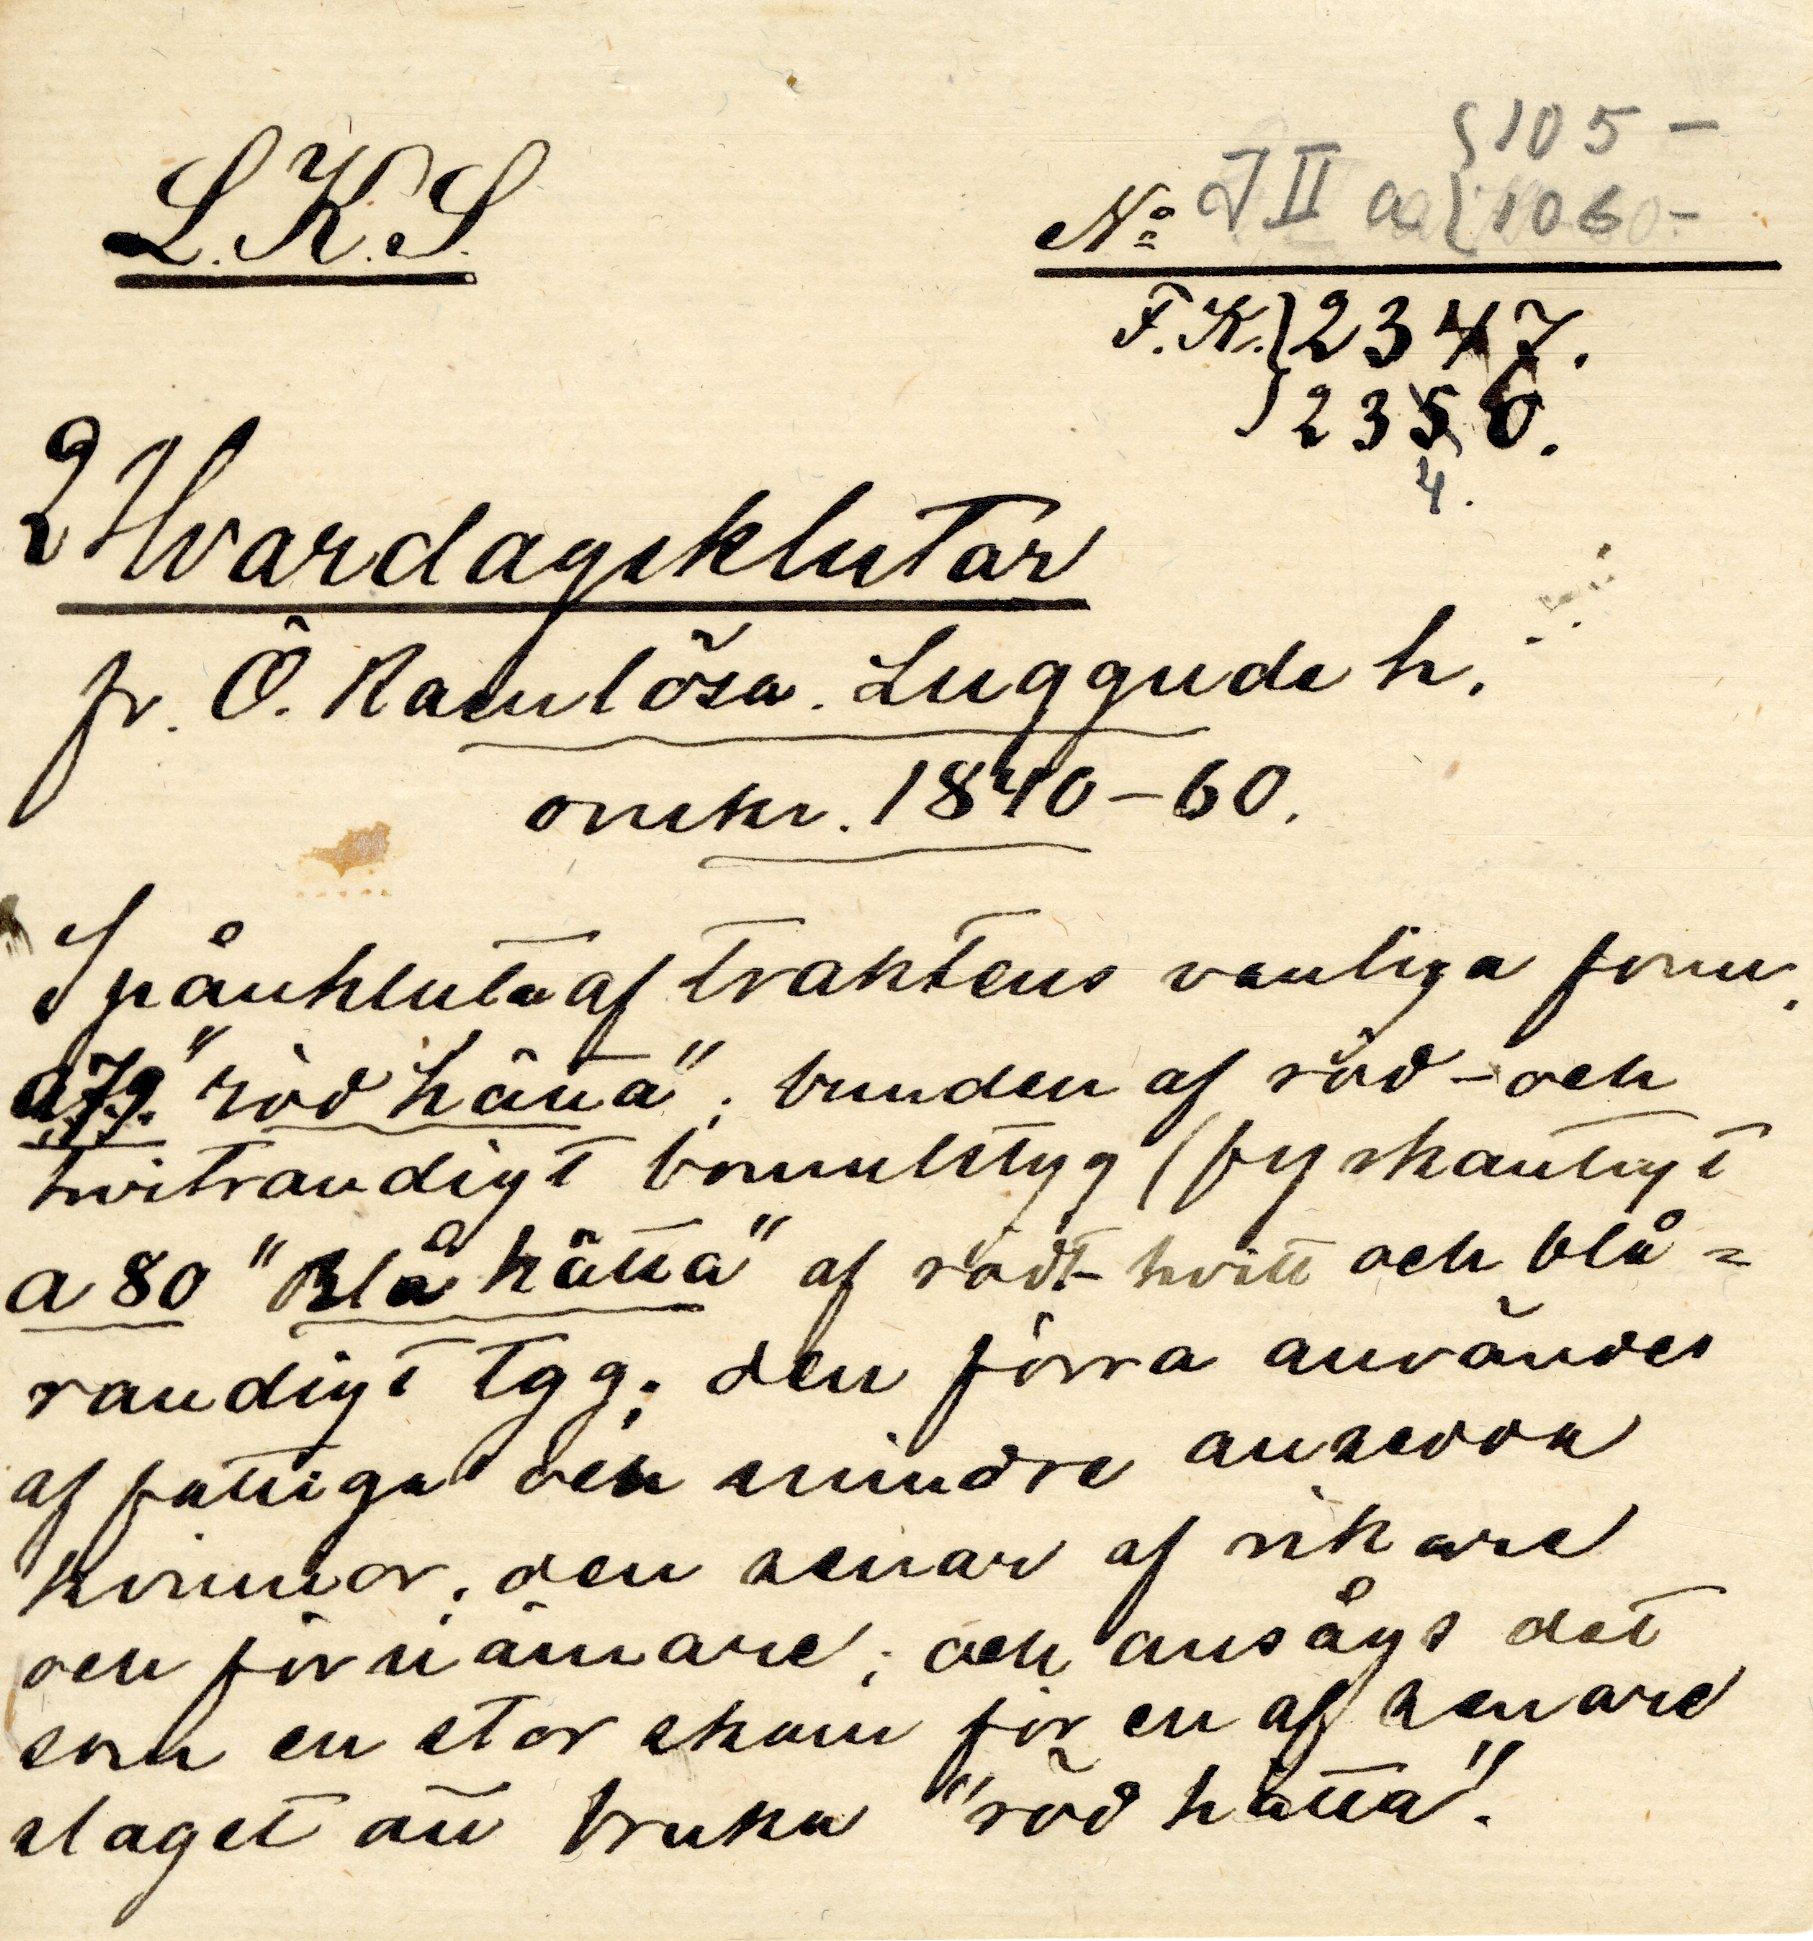 L.K.S.
No J II a { 105 -
{ 106 -
F.K. } 2347.
} 2350.
4.
2 Hvardagsklutar
fr. Ö. Ramlösa. Luggude h.
omkr. 1840-60.
Spånkluta af traktens vanliga form.
a79. "röd hätta"; bunden af röd- och
hvitrandigt bomullstyg (fyrkantigt
a 80 "Blå hätta" af rödt- hvitt och blå=
randigt tyg; den förra användes
af fattiga och mindre ansedda
kvinnor; den senare af rikare
och förnämare; och ansågs det
som en stor skam för en af senare
slaget att bruka "röd hätta".